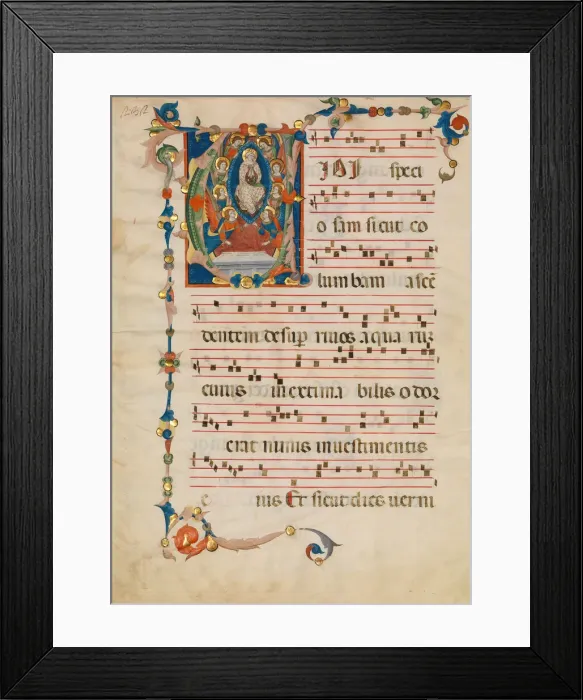 IDI speci
o sam sicut co
lum bam ascē
dentem desup rivos aqua ruz
cuius inextima bilis odor
erat nimis in vestimentis
c nis Et sicut dies verni